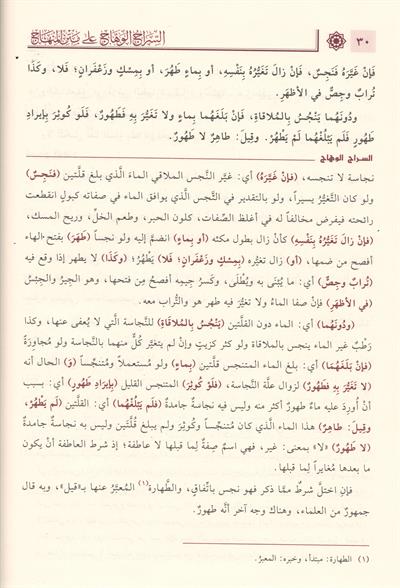 ٣٠ السِّرَاجُ الوَهَّاجُ عَلَى مَتْنِ المِنْهَاجِ
فَإِنْ غَيَّرَهُ فَنَجِسٌ، فَإِنْ زَالَ تَغَيُّرُهُ بِنَفْسِهِ، أو بِماءٍ طَهُرَ، أو بِمِسْكٍ وزَعْفَرانٍ؛ فَلا، وكَذَا
تُرابٌ وجِصٌّ في الأظهَرِ.
ودُونَهُما يَنْجُسُ بِالمُلاقاةِ، فَإِنْ بَلَغَهُما بِماءٍ ولا تَغَيُّرَ بِهِ فَطَهُورٌ، فَلَو كُوثِرَ بِإيرادِ
طَهُورٍ فَلَم يَبْلُغْهُما لَمْ يَطْهُرْ. وقِيلَ: طاهِرٌ لا طَهُورٌ.
السراج الوهاج
نجاسة لا تنجسه، (فإِنْ غَيَّرَهُ) أي: غيَّر النَّجس الملاقي الماءَ الَّذي بلغ قلَّتين (فَنَجِسٌ)
ولو كان التَّغيُّرُ يسيراً، ولو بالتقدير في النَّجس الَّذي يوافق الماء في صفاته كبولٍ انقطعت
رائحته فيفرض مخالفاً له في أغلظ الصِّفات، كلون الحبر، وطعم الخلِّ، وريح المسك،
(فَإِنْ زالَ تَغَيُّرُهُ بِنَفْسِهِ) كأنْ زال بطول مكثه (أو بِماءٍ) انضمَّ إليه ولو نجساً (طَهَرَ) بفتح الهاء
أفصح من ضمها، (أو) زال تغيُّره (بِمِسْكٍ وزَعْفَرانٍ؛ فَلا) يَطهُر؛ (وكَذا) لا يطهر إذا وقع فيه
(تُرابٌ وجِصٌّ) أي: ما يُبْنَى به ويُطْلَى، وكَسرُ جِيمِه أفصحُ مِن فتحها، وهو الجِيرُ والجِبْسُ
(في الأظهَرِ) فإنْ صفا الماءُ ولا تغيُّرَ فيه طهر هو والتُّراب معه.
(ودُونَهُما) أي: الماء دون القلَّتين (يَنْجُسُ بِالمُلاقاةِ) للنَّجاسة الَّتي لا يُعفى عنها، وكذا
رَطْبُ غيرِ الماء ينجس بالملاقاة ولو كثر كزيتٍ وإنْ لم يتغيَّر كلٌّ منهما بالنَّجاسة ولو مُجاوَرةً
(فإنْ بَلَغَهُما) أي: بلغ الماء المتنجس قلَّتين (بِماءٍ) ولو مُستعملاً ومُتنجِّساً (وَ) الحال أنه
(لا تَغَيُّرَ بِهِ فَطَهُورٌ) لزوال علَّة النَّجاسة، (فَلَو كُوثِرَ) المتنجس القليل (بِإيرادِ طَهُورٍ) أي: بسبب
أنْ أُورِدَ عليه ماءٌ طهورٌ أكثر منه وليس فيه نجاسة جامدةٌ (فَلَم يَبْلُغْهُما) أي: القلَّتين (لَم يَطْهُرْ،
وقِيلَ: طاهِرٌ) هذا الماء الَّذي كان مُتنجِّساً وكُوثِرَ ولم يبلغ قلَّتين وليس به نجاسةٌ جامدةٌ
(لا طَهُورٌ) «لا» بمعنى: غير، فهي اسم صِفةٌ لِما قبلها لا عاطفة؛ إذ شرط العاطفة أنْ يكون
ما بعدها مُغايراً لِما قبلها.
فإنِ اختلَّ شرطٌ ممَّا ذكر فهو نجس باتِّفاقٍ، والطَّهارة(١) المُعبَّرُ عنها بـ«قيل»، وبه قال
جمهورٌ من العلماء، وهناك وجه آخر أنَّه طهورٌ.
(١) الطهارة: مبتدأ، وخبره: المعبرُ.